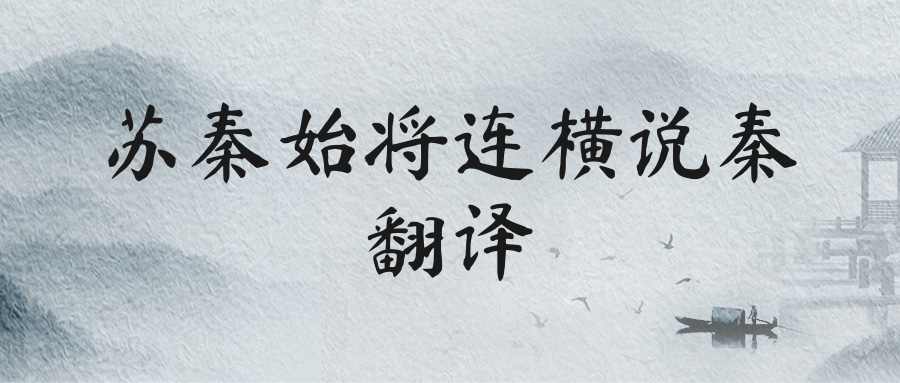 苏秦始将连横说秦
翻译